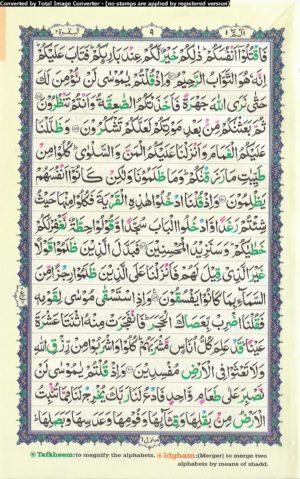 Converted by Total Image Converter - (no stamps are applied by registered version)
البقرة ٢
٩
الٓمّٓ ١
فَاقْتُلُوْٓا اَنْفُسَكُمْ ذٰلِكُمْ خَيْرٌ لَّكُمْ عِنْدَ بَارِئِكُمْ فَتَابَ عَلَيْكُمْ
اِنَّهٗ هُوَ التَّوَّابُ الرَّحِيْمُ وَاِذْ قُلْتُمْ يٰمُوْسٰى لَنْ نُّؤْمِنَ لَكَ
حَتّٰى نَرَى اللّٰهَ جَهْرَةً فَاَخَذَتْكُمُ الصّٰعِقَةُ وَاَنْتُمْ تَنْظُرُوْنَ
ثُمَّ بَعَثْنٰكُمْ مِّنْ بَعْدِ مَوْتِكُمْ لَعَلَّكُمْ تَشْكُرُوْنَ وَظَلَّلْنَا
عَلَيْكُمُ الْغَمَامَ وَاَنْزَلْنَا عَلَيْكُمُ الْمَنَّ وَالسَّلْوٰى كُلُوْا مِنْ
طَيِّبٰتِ مَا رَزَقْنٰكُمْ وَمَا ظَلَمُوْنَا وَلٰكِنْ كَانُوْٓا اَنْفُسَهُمْ
يَظْلِمُوْنَ وَاِذْ قُلْنَا ادْخُلُوْا هٰذِهِ الْقَرْيَةَ فَكُلُوْا مِنْهَا حَيْثُ
شِئْتُمْ رَغَدًا وَّادْخُلُوا الْبَابَ سُجَّدًا وَّقُوْلُوْا حِطَّةٌ نَّغْفِرْ لَكُمْ
خَطٰيٰكُمْ وَسَنَزِيْدُ الْمُحْسِنِيْنَ فَبَدَّلَ الَّذِيْنَ ظَلَمُوْا قَوْلًا
غَيْرَ الَّذِيْ قِيْلَ لَهُمْ فَاَنْزَلْنَا عَلَى الَّذِيْنَ ظَلَمُوْا رِجْزًا مِّنَ
السَّمَآءِ بِمَا كَانُوْا يَفْسُقُوْنَ وَاِذِ اسْتَسْقٰى مُوْسٰى لِقَوْمِهٖ
فَقُلْنَا اضْرِبْ بِّعَصَاكَ الْحَجَرَ فَانْفَجَرَتْ مِنْهُ اثْنَتَا عَشْرَةَ
عَيْنًا قَدْ عَلِمَ كُلُّ اُنَاسٍ مَّشْرَبَهُمْ كُلُوْا وَاشْرَبُوْا مِنْ رِّزْقِ اللّٰهِ
وَلَا تَعْثَوْا فِى الْاَرْضِ مُفْسِدِيْنَ وَاِذْ قُلْتُمْ يٰمُوْسٰى لَنْ
نَّصْبِرَ عَلٰى طَعَامٍ وَّاحِدٍ فَادْعُ لَنَا رَبَّكَ يُخْرِجْ لَنَا مِمَّا تُنْبِتُ
الْاَرْضُ مِنْ بَقْلِهَا وَقِثَّآئِهَا وَفُوْمِهَا وَعَدَسِهَا وَبَصَلِهَا
منزل ١
Tafkheem:to magnify the alphabets. Idgham:(Merger) to merge two
alphabets by means of shadd.